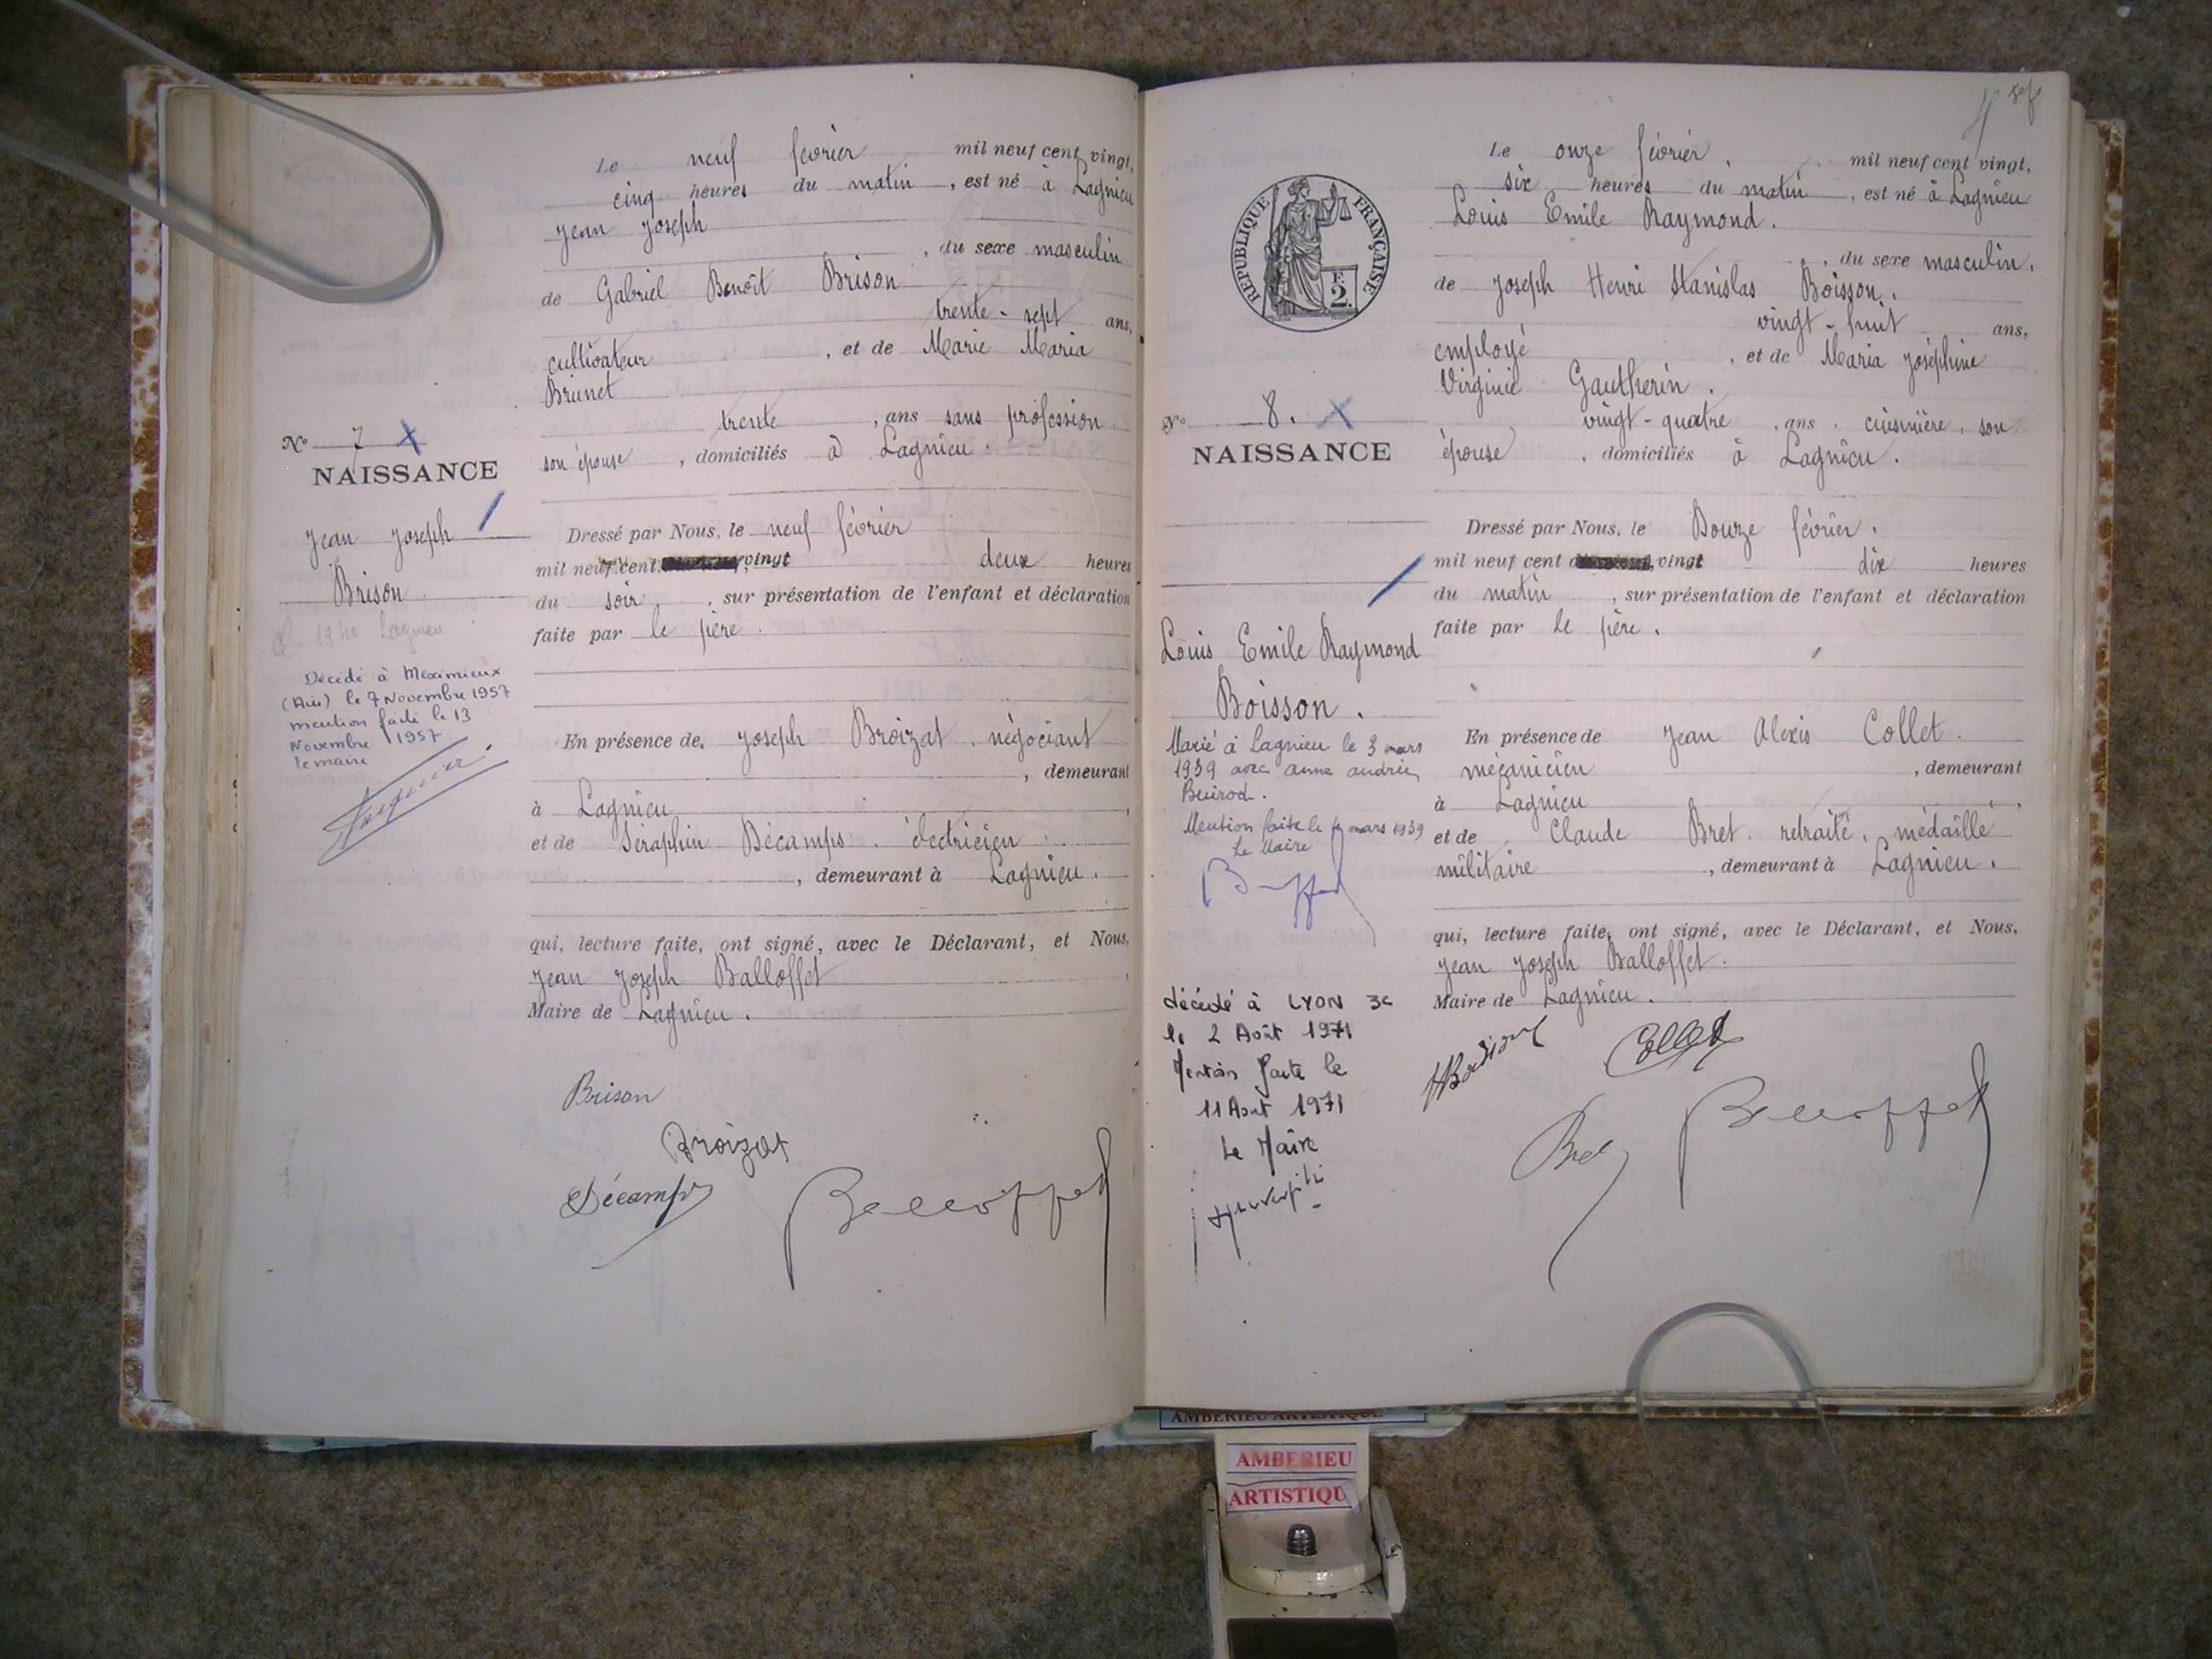 Le neuf février mil neuf cent vingt,
cinq heures du matin, est né à Lagnieu
Jean Joseph
, du sexe masculin
de Gabriel Benoît Brison
trente-sept ans,
cultivateur, et de Marie Maria
Brunet
trente, ans sans profession
son épouse, domiciliés à Lagnieu.
No 7 X
NAISSANCE
Jean Joseph
Brison
1940 Lagnieu
Décédé à Meximieux
(Ain) le 7 Novembre 1957
mention faite le 13
Novembre 1957
le maire
Dressé par Nous, le neuf février
mil neuf cent vingt deux heures
du soir, sur présentation de l'enfant et déclaration
faite par le père.
En présence de Joseph Broizat, négociant
, demeurant
à Lagnieu,
et de Séraphin Décamps, électricien
, demeurant à Lagnieu.
qui, lecture faite, ont signé, avec le Déclarant, et Nous,
Jean Joseph Balloffet
Maire de Lagnieu.
Brison
Broizat
Décamps
Balloffet
Le onze février, mil neuf cent vingt,
six heures du matin, est né à Lagnieu
Louis Emile Raymond.
, du sexe masculin.
de Joseph Henri Stanislas Boisson.
vingt-huit ans,
employé, et de Maria Joséphine
Virginie Gautherin.
vingt-quatre, ans, cuisinière, son
épouse, domiciliés à Lagnieu.
REPUBLIQUE FRANÇAISE
F.
2.
No 8. X
NAISSANCE
Louis Emile Raymond
Boisson.
Marié à Lagnieu le 3 mars
1939 avec
Mention faite le mars 1939
Le Maire
décédé à LYON 3e
le 2 Août 1971
Mention faite le
11 Aout 1971
Le Maire
Dressé par Nous, le Douze février.
mil neuf cent vingt dix heures
du matin, sur présentation de l'enfant et déclaration
faite par le père.
En présence de Jean Alexis Collet.
mécanicien, demeurant
à Lagnieu,
et de Claude Bret, retraité, médaillé
militaire, demeurant à Lagnieu.
qui, lecture faite, ont signé, avec le Déclarant, et Nous,
Jean Joseph Balloffet.
Maire de Lagnieu.
HBoisson
Collet
Bret
Balloffet
AMBERIEU ARTISTIQUE
AMBERIEU
ARTISTIQU